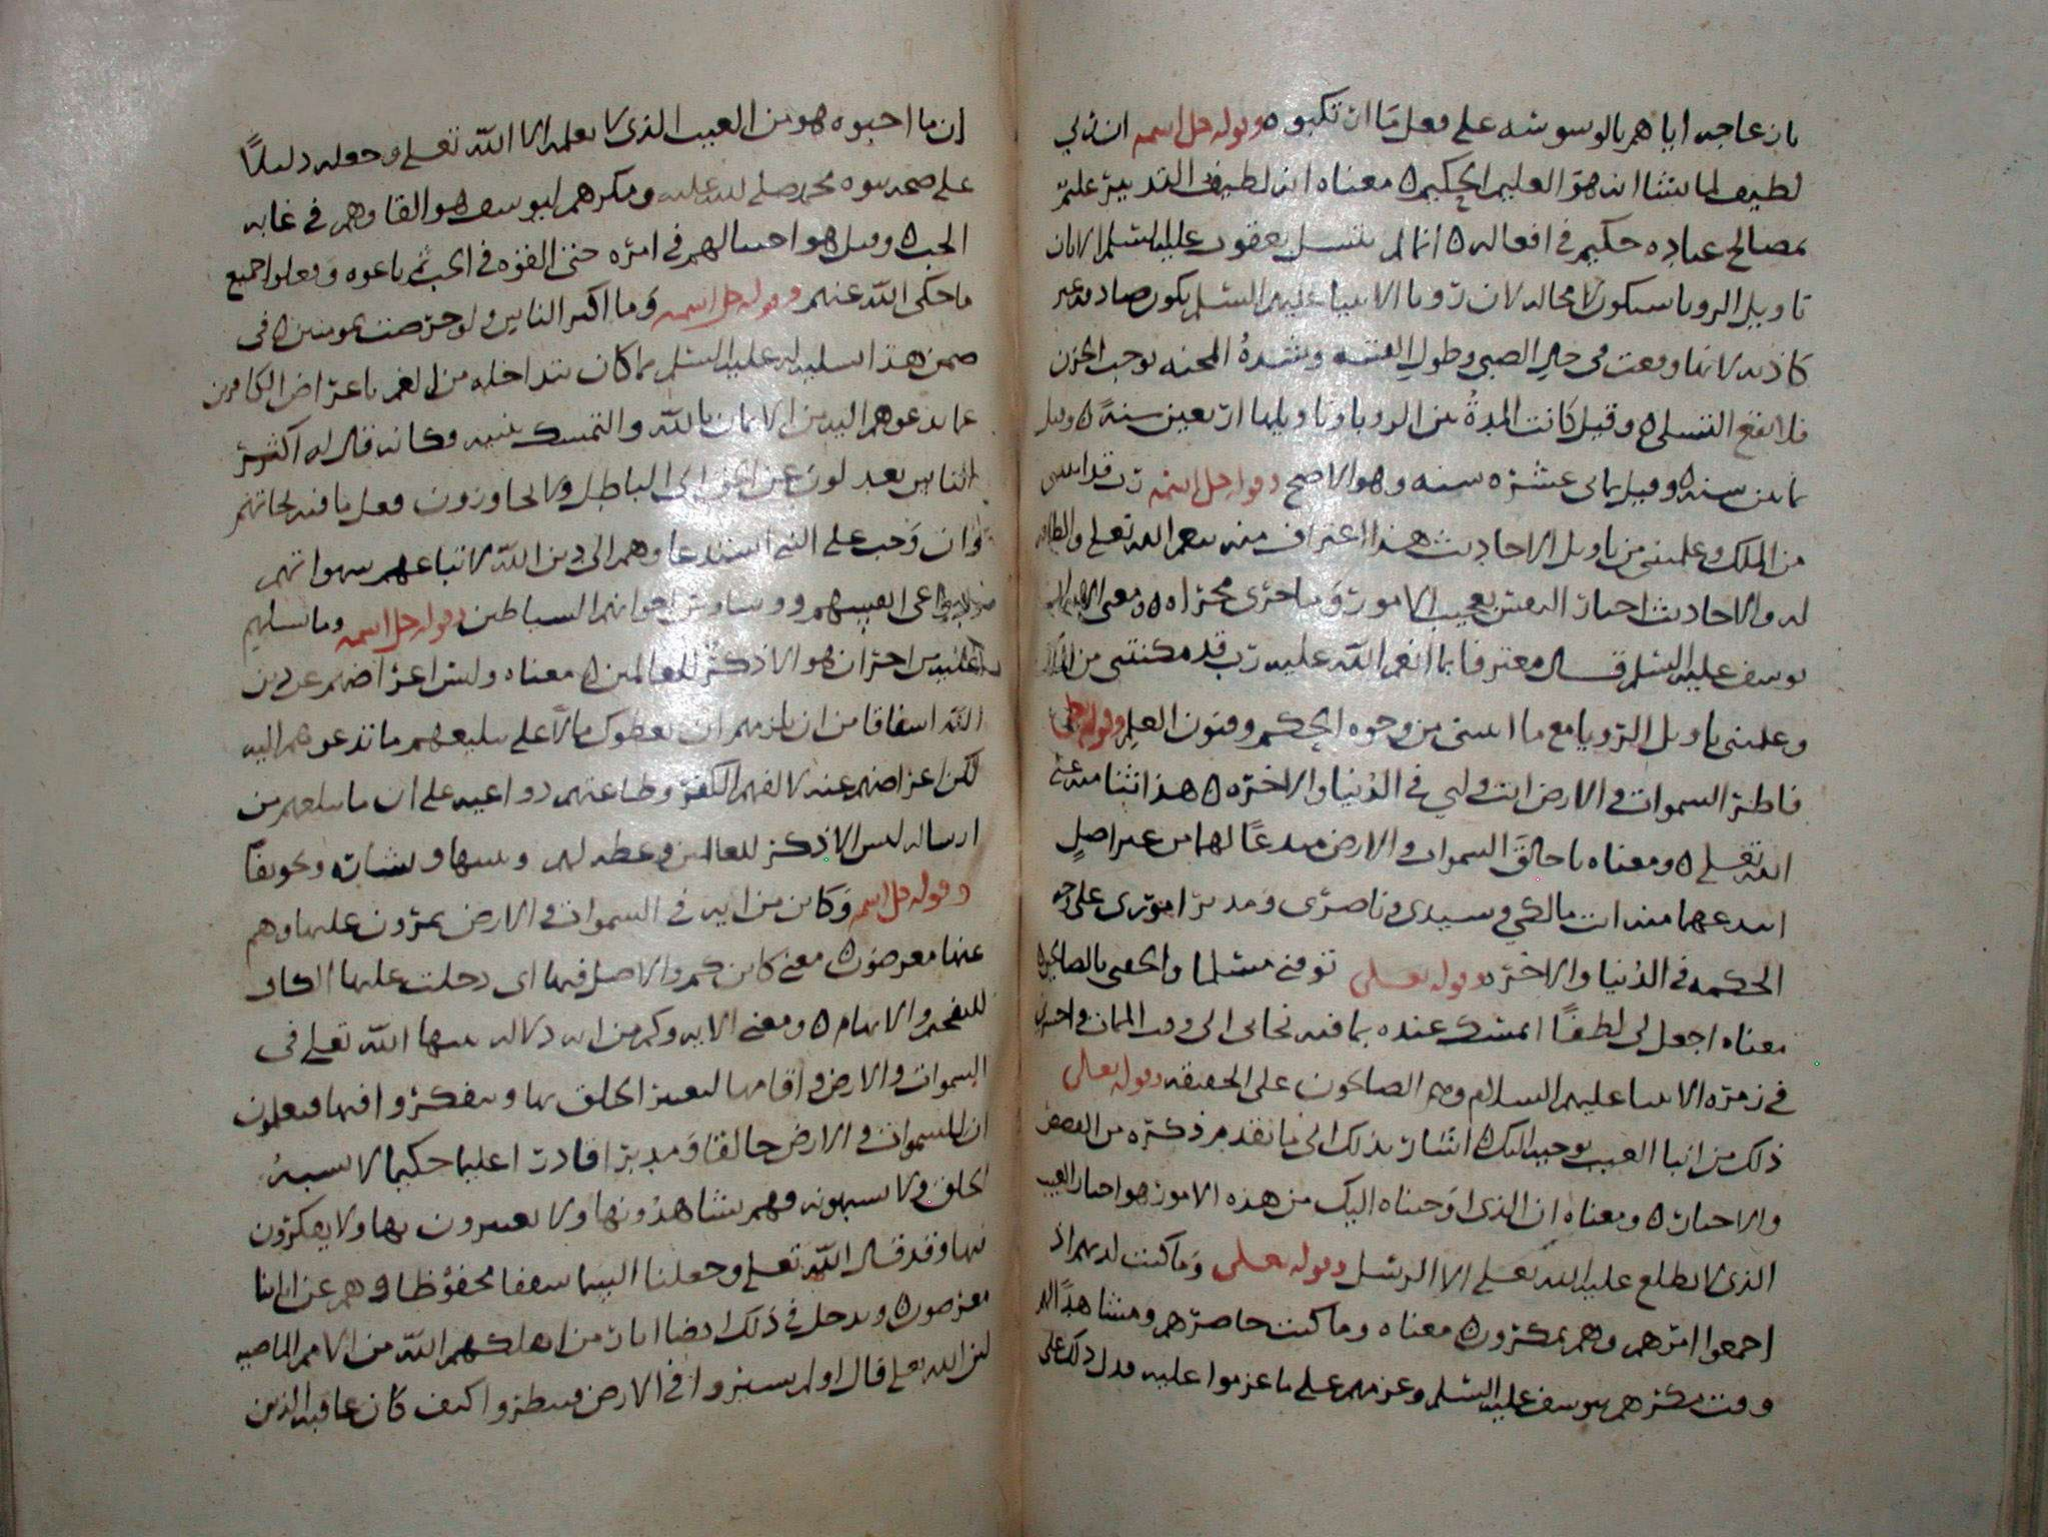 بان عاجه اياهم بالوسوسة على فعل ما ارتكبوه وقوله جل اسمه ان ربي
لطيف لما يشا انه هو العليم الحكيم ه معناه انه لطيف التدبير عليم
بمصالح عباده حكيم في افعاله ه انما لم يتسل يعقوب عليه السلم الا بان
تاويل الرويا سيكون لا محاله لان رويا الانبيا عليهم السلم يكون صادقه غير
كاذبه لانها وقعت في حال الصبى وطول الغيبة وشدة المحنه توجب الحزن
فلم يقع التسلي ه وقيل كانت المدة بين الرويا وتاويلها اربعين سنة ه وقيل
ثمانين سنه ه وقيل ثماني عشره سنه وهو الاصح وقوله جل اسمه رب قد اتيتني
من الملك وعلمتني من تاويل الاحاديث هذا اعتراف منه بنعم الله تعلى
له والاحاديث اخبار بعجيب الامور وما جرى مجراه ه ومعنى
يوسف عليه السلم قال معترفا بما انعم الله عليه رب قد مكنتني من
وعلمتني تاويل الرويا مع ما اتيتني من وجوه الحكم وفنون العلم وقوله
فاطر السموات والارض انت وليي في الدنيا والاخره ه هذا ثنا منه على
الله تعلى ه ومعناه يا خالق السموات والارض مبدعا لهما من غير اصل
ابتدعهما منه انت مالكي وسيدي وناصري ومدبر اموري على وجه
الحكمه في الدنيا والاخره وقوله تعلى توفني مسلما والحقني بالصالحين ه
معناه اجعل لي لطفا اتمسك عنده بما فيه نجاتي الى وقت الممات واحشرني
في زمره الانبيا عليهم السلام وهم الصالحون على الحقيقه وقوله تعالى
ذلك من انبا الغيب نوحيه اليك ه اشار بذلك الى ما تقدم ذكره من القصص
والاخبار ه ومعناه ان الذي اوحيناه اليك من هذه الامور هو اخبار الغيب
الذي لا يطلع عليه الله تعلى الا الرسل وقوله تعلى وما كنت لديهم اذ
اجمعوا امرهم وهم يمكرون ه معناه وما كنت حاضرهم ومشاهدا
وقت مكرهم بيوسف عليه السلم وعزمهم على ما عزموا عليه فدل ذلك على
ان ما اخبره هو من الغيب الذي لا يعلمه الا الله تعلى وجعله دليلا
على صحه نبوه محمد صلى الله عليه ومكرهم ليوسف هو القاوهم في غيابه
الجب ه وقيل هو احتيالهم في امره حتى القوه في الجب ثم باعوه وفعلوا جميع
ما حكى الله عنهم وقوله جل اسمه وما اكثر الناس ولو حرصت بمومنين ه في
ضمن هذا تسليه له عليه السلم بما كان يتداخله من الغم باعراض الكافرين
عما يدعوهم اليه من الايمان بالله والتمسك بدينه وكانه قال له اكثر
الناس يعدلون عن الحق الى الباطل ولا يختارون فعل ما فيه نجاتهم
وان وجب على النبي استدعاوهم الى دين الله لاتباعهم شهواتهم
دواعي انفسهم ووساوس اخوانهم الشياطين وقوله جل اسمه وما تسلهم
عليه من اجر ان هو الا ذكر للعالمين ه معناه وليس اعراضهم عن دين
الله اشفاقا من ان يلزمهم ان يعطوك مالا على تبليغهم ما تدعوهم اليه
لكن اعراضهم عنه لالفهم الكفر وطاعتهم دواعيه على ان ما تبلغهم من
ارساله ليس الا ذكر للعالمين وعظه لهم وتنبيها وبشاره وتخويفا
وقوله جل اسمه وكاين من ايه في السموات والارض يمرون عليها وهم
عنها معرضون ه معنى كاين كم والاصل فيها اى دخلت عليها الكاف
للتفخيم والابهام ه ومعنى الايه وكم من ايه دلاله بينها الله تعلى في
السموات والارض واقامها ليعتبر الخلق بها ويتفكروا فيها فيعلمون
ان للسموات والارض خالقا ومدبرا قادرا عليما حكيما لا يشبه
الخلق ولا يشبهونه وهم يشاهدونها ولا يعتبرون بها ولا يفكرون
فيها وقد قال الله تعلى وجعلنا السما سقفا محفوظا وهم عن اياتنا
معرضون ه ويدخل في ذلك ايضا اثار من اهلكهم الله من الامم الماضيه
لان الله تعلى قال اولم يسيروا في الارض فينظروا كيف كان عاقبه الذين